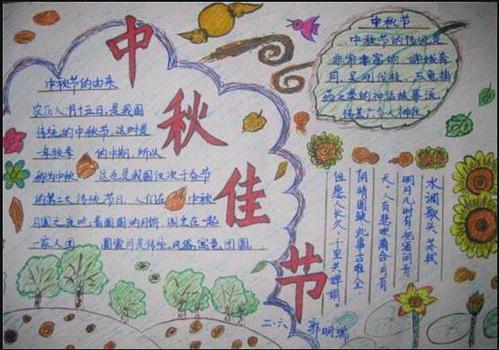 中秋佳节
中秋节的由来
农历八月十五日,是我国
传统的中秋节,这时是
一年秋季 的中期,所以
称为中秋 这也是我国仅次于春节
的第二大传统节日,人们在 中秋
月圆之夜吃着圆圆的月饼,围坐在一起
一家人团
中秋节
中秋节的传说是
非常丰富的,嫦娥奔
月,吴刚伐桂,玉兔捣
药之类的神话故事流
水调歌头 苏轼
明月几时有,把酒问青
天,人有悲欢离合,月有
阴晴圆缺,此事古难全,
但愿人长久,千里共婵娟。
二.六 郭明瑞